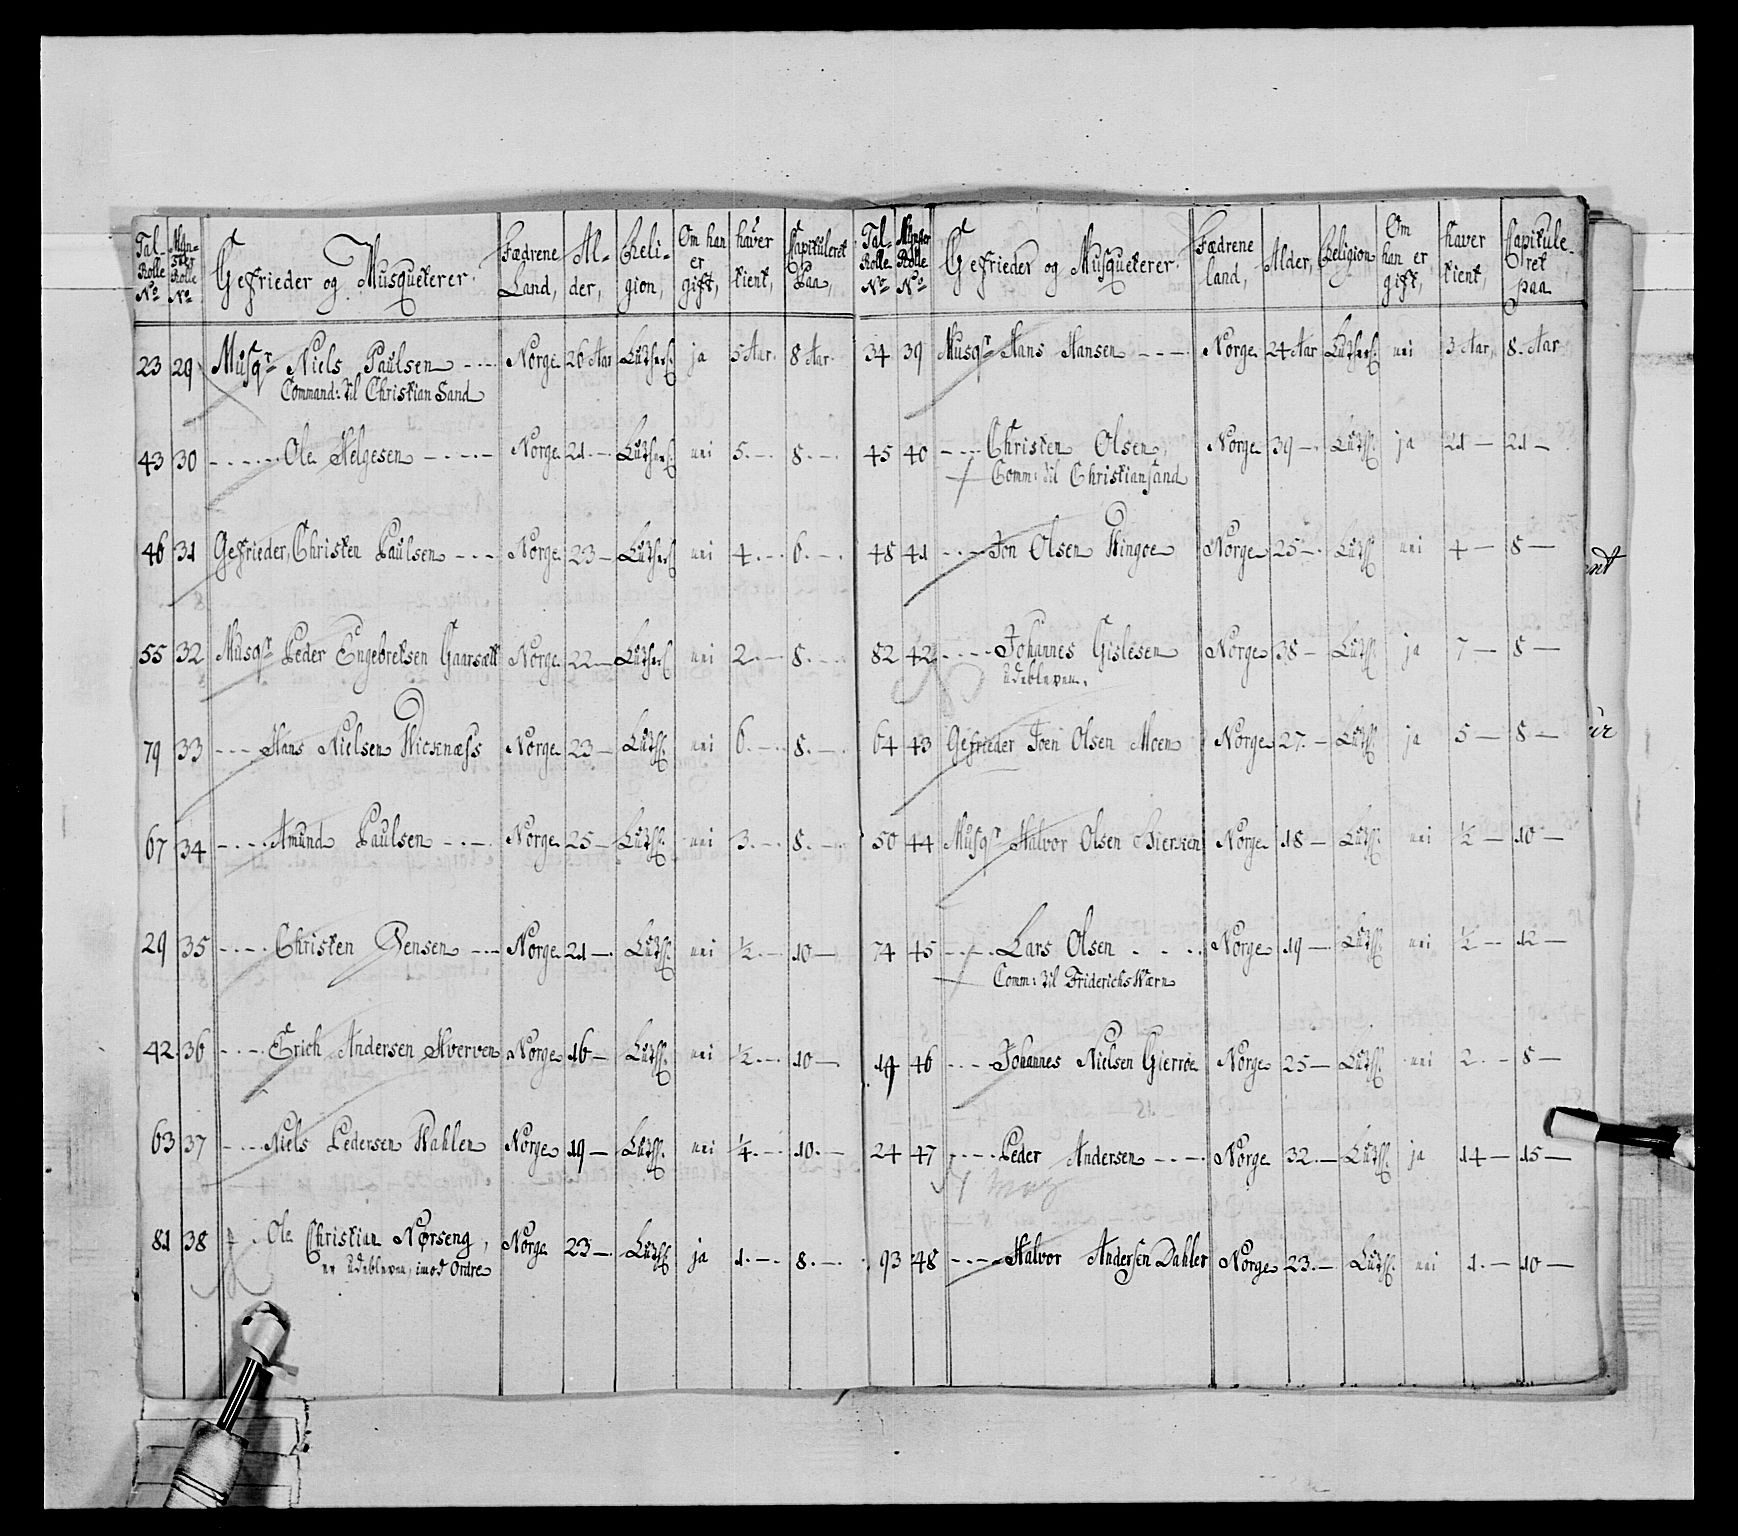 Tal-Rolle No | Mynster Rolle No | Gefrieder og Musqueterer. | Fædrene Land, | Al-der, | Reli-gion, | Om han er gift, | haver tient, | Capituleret Paa,
23 | 29 | Musqr Niels Paulsen | Norge | 26 Aar | Luthersk | ja | 5 Aar. | 8 Aar.
Command: til Christian Sand
43 | 30 | Ole Helgesen | Norge | 21 | Luthersk | nei | 5. | 8.
46 | 31 | Gefrieder, Christen Paulsen | Norge | 23 | Luthersk | nei | 4. | 6.
55 | 32 | Musqr Peder Engebretsen Gaarsæt | Norge | 22 | Luthersk | nei | 2. | 8.
79 | 33 | Hans Nielsen | Norge | 23 | Luthsk | nei | 6. | 8.
67 | 34 | Amund Paulsen | Norge | 25 | Luthsk | nei | 3. | 8.
29 | 35 | Christen Jensen | Norge | 21 | Luthsk | nei | ½. | 10
42 | 36 | Erich Andersen Hverven | Norge | 16 | Luthsk | nei | ½. | 10
63 | 37 | Niels Pedersen Wahlen | Norge | 19 | Luthsk | nei | ¼. | 10.
81 | 38 | Ole Christian Nørseng, | Norge | 23 | Luthsk | ja | 1. | 8.
er udebleven, imod Ordre
Tal-Rolle No | Mynster Rolle No | Gefrieder og Musqueterer. | Fædrene land, | Alder, | Religion | Om han er gift, | haver tient, | Capitule-ret paa
34 | 39 | Musqr Hans Hansen | Norge | 24 Aar | Luthersk | nei | 3 Aar, | 8. Aar
45 | 40 | Christen Olsen, | Norge | 39 | Luthsk | ja | 21 | 21
Comm: til Christiansand
48 | 41 | Jon Olsen Wingoe | Norge | 25 | Luthsk | nei | 4 | 8
82 | 42 | Johannes Gislesen | Norge | 38 | Luthsk | ja | 7 | 8
udebleven.
64 | 43 | Gefrieder Joen Olsen Moen | Norge | 27. | Luthsk | ja | 5 | 8
50 | 44 | Musqr Halvor Olsen | Norge | 18 | Luthsk | nei | ½ | 10
74 | 45 | Lars Olsen | Norge | 19 | Luthsk | nei | ½ | 12
Comm: til Friderichs Wærn
14 | 46 | Johannes Nielsen Gierroe | Norge | 25 | Luthsk | nei | 2. | 8
24 | 47 | Peder Andersen | Norge | 32. | Luthsk | ja | 14 | 15
93 | 48 | Halvor Andersen Dahler | Norge | 23. | Luthsk | nei | 1. | 10